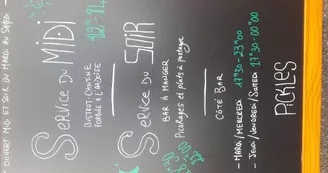 - OUVERT MIDI ET SOIR DU MARDI AU SAMEDI -
SERVICE DU MIDI
12H-14
BISTROT-CANTINE
FORMULE À L'ARDOISE
SERVICE DU SOIR
BAR À MANGER
Picorages et plats à partager
CÔTÉ BAR
- MARDI/MERCREDI 17H30-23H00
- JEUDI/VENDREDI/SAMEDI 17H30-00H00
PICKLES